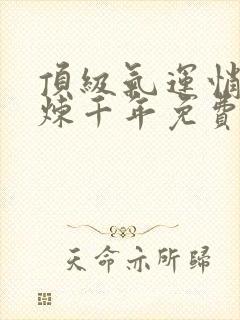 頂級氣運悄
煉千年免費
天命亦所歸